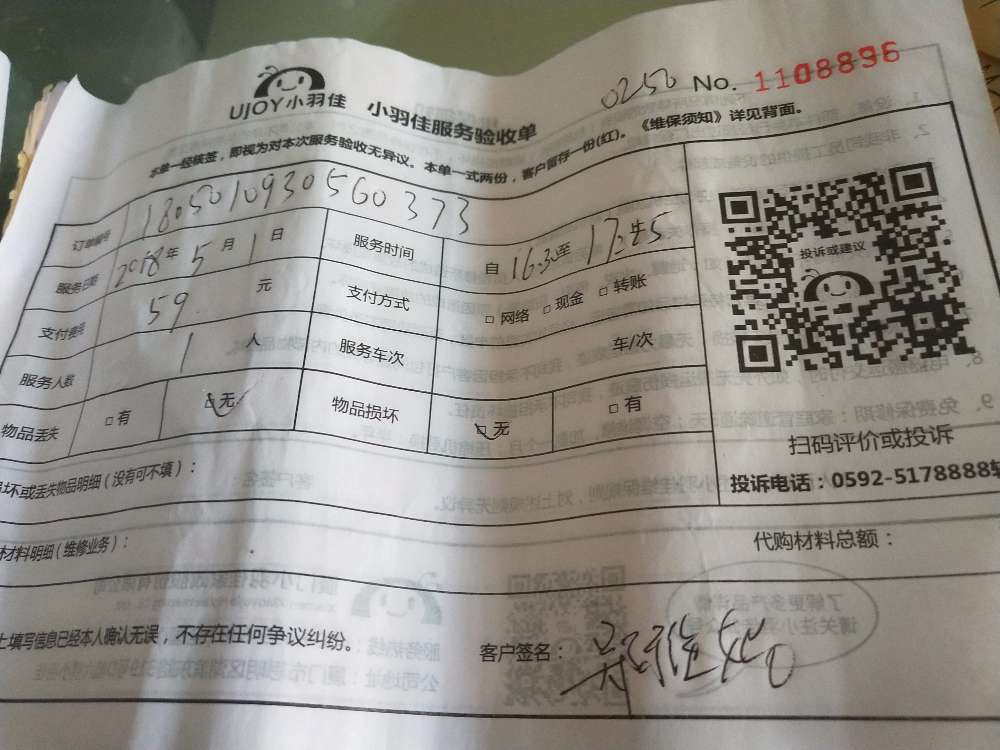 UJOY小羽佳 小羽佳服务验收单 0250 No. 1108896
本单一经核签，即视为对本次服务验收无异议。本单一式两份，客户留存一份(红)。《维保须知》详见背面。
订单编号 1805010930560373
服务日期 2018年5月1日 服务时间 自 16:30至 17:45
支付费用 59 元 支付方式 □ 网络 □ 现金 □ 转账
服务人数 1 人 服务车次 车/次
物品丢失 □ 有 □ 无 物品损坏 □ 无 □ 有
投诉或建议
扫码评价或投诉
投诉电话：0592-5178888转
坏或丢失物品明细（没有可不填）：
材料明细（维修业务）： 代购材料总额：
上填写信息已经本人确认无误，不存在任何争议纠纷。 客户签名：